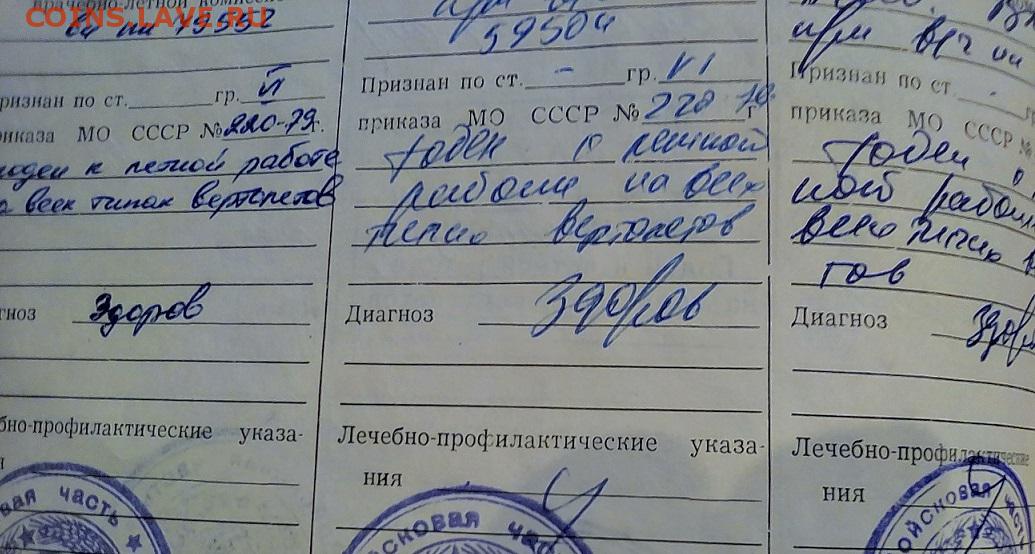 COINS.LAVE.RU
врачебно-летной комиссие
вч пп 75552
ризнан по ст. гр. VI
риказа МО СССР № 220-79 г.
годен к летной работе
всех типах вертолетов
гноз Здоров
бно-профилактические указа-
вая часть
59504
Признан по ст. - гр. VI
приказа МО СССР № 220 79 г
годен к летной
работе на всех
типах вертолетов
Диагноз Здоров
Лечебно-профилактические указа-
ния
йсковая час
при вч пп
Признан по ст. -
приказа МО СССР №
годен
ной работе
всех типах
тов
Диагноз Здоро
Лечебно-профилактические
ния
ойсковая